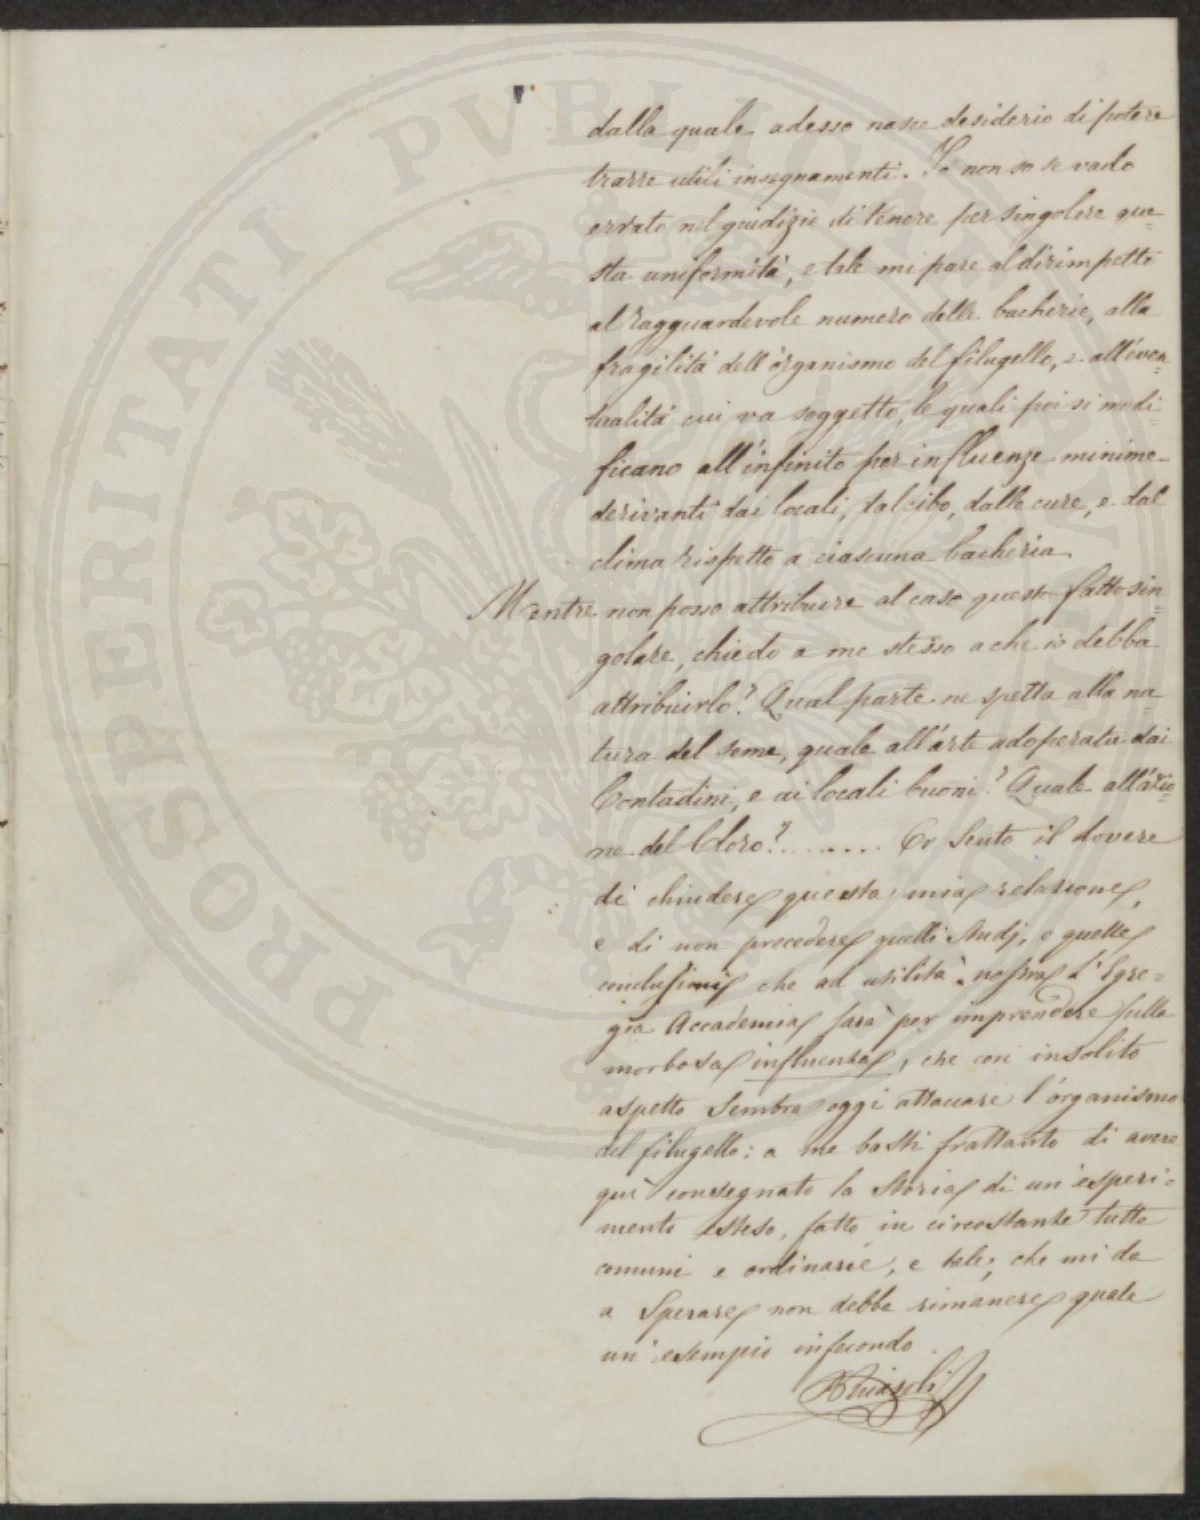 dalla quale adesso nasce desiderio di potere
trarre utili insegnamenti. Io non so se vado
errato nel giudizio di tenere per singolare que=
sta uniformità, e tale mi pare al dirimpetto
al ragguardevole numero delle bacherie, alla
fragilità dell'organismo del filugello, e all'even=
tualità cui va soggetto, le quali poi si modi=
ficano all'infinito per influenze minime
derivanti dai locali, dal cibo, dalle cure, e dal
clima rispetto a ciascuna bacheria.
Mentre non posso attribuire al caso questo fatto sin=
golare, chiedo a me stesso a che io debba
attribuirlo? Qual parte ne spetta alla na=
tura del seme, quale all'arte adoperata dai
Contadini, e ai locali buoni? Quale all'azio=
ne del Cloro?......... Or sento il dovere
di chiudere questa mia relazione,
e di non precedere quelli studj, e quelle
conclusioni che ad utilità nostra l'Egre=
gia Accademia sarà per imprendere sulla
morbosa influenza, che con insolito
aspetto sembra oggi attaccare l'organismo
del filugello: a me basti frattanto di avere
quì consegnato la storia di un'esperi=
mento esteso, fatto in circostanze tutte
comuni e ordinarie, e tale, che mi da
a sperare non debba rimanere quale
un'esempio infecondo.
PROSPERITATI PVBLICAE